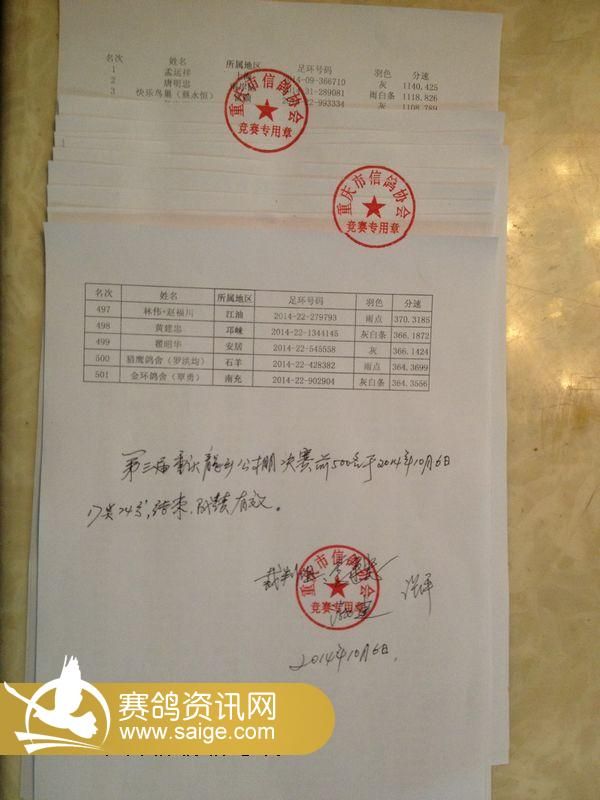 名次 姓名 所属地区 足环号码 羽色 分速
1 孟运祥 14-09-366710 灰 1140.425
2 唐明忠 31-289081 雨白条 1118.826
3 快乐鸟巢（蔡永恒） 22-993334 灰 1108.789
重庆市信鸽协会
竞赛专用章
重庆市信鸽协会
竞赛专用章
名次 姓名 所属地区 足环号码 羽色 分速
497 林伟·赵福川 江油 2014-22-279793 雨点 370.3185
498 黄建忠 邛崃 2014-22-1344145 灰白条 366.1872
499 瞿昭华 安居 2014-22-545558 灰 366.1424
500 猎鹰鸽舍（罗洪均） 石羊 2014-22-428382 雨点 364.3699
501 金环鸽舍（覃勇） 南充 2014-22-902904 灰白条 364.3556
第三届重庆 公棚决赛前500名于2014年10月6日
17点24分结束，成绩有效。
裁判组
重庆市信鸽协会
竞赛专用章
2014年10月6日.
赛鸽资讯网
www.saige.com